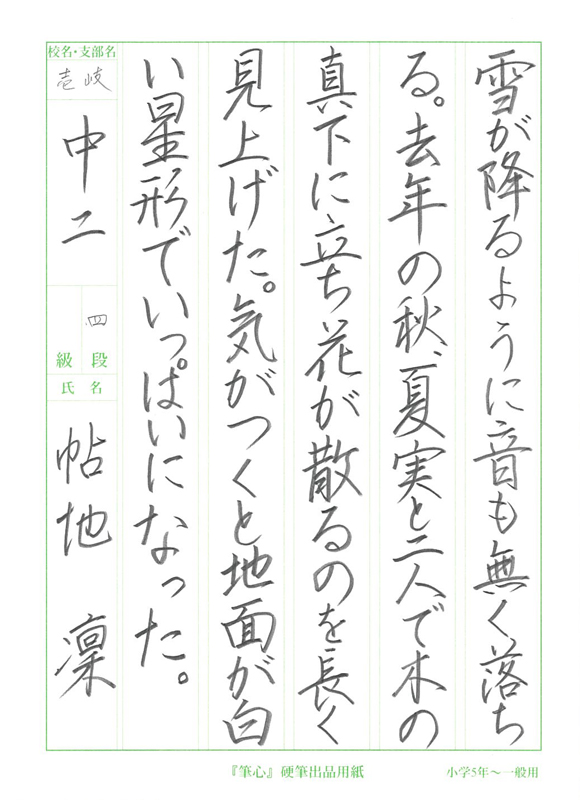 雪が降るように音も無く落ち
る。去年の秋、夏実と二人で木の
真下に立ち花が散るのを長く
見上げた。気がつくと地面が白
い星形でいっぱいになった。
校名・支部名
壱岐
中二
四
級 段
氏 名
帖地 凜
『筆心』硬筆出品用紙
小学5年〜一般用